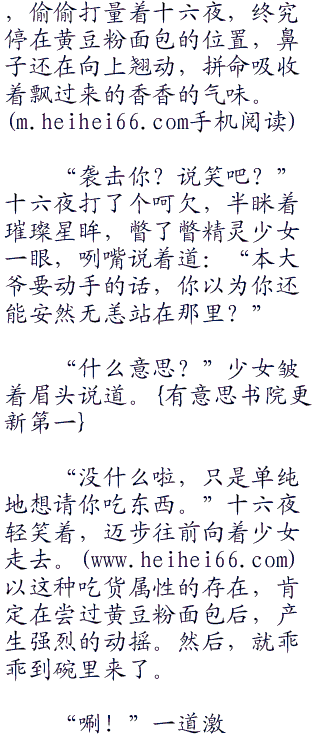 ，偷偷打量着十六夜，终究
停在黄豆粉面包的位置，鼻
子还在向上翘动，拼命吸收
着飘过来的香香的气味。
(m.heihei66.com手机阅读)
“袭击你？说笑吧？”
十六夜打了个呵欠，半眯着
璀璨星眸，瞥了瞥精灵少女
一眼，咧嘴说着道：“本大
爷要动手的话，你以为你还
能安然无恙站在那里？”
“什么意思？”少女皱
着眉头说道。{有意思书院更
新第一}
“没什么啦，只是单纯
地想请你吃东西。”十六夜
轻笑着，迈步往前向着少女
走去。(www.heihei66.com)
以这种吃货属性的存在，肯
定在尝过黄豆粉面包后，产
生强烈的动摇。然后，就乖
乖到碗里来了。
“唰！”一道激